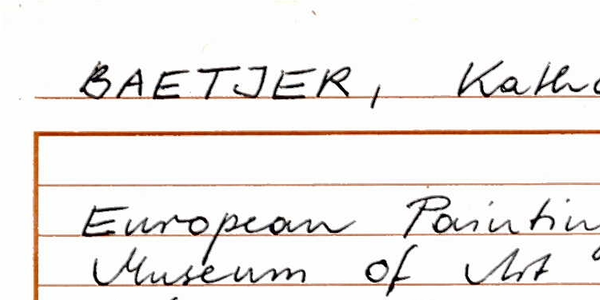 BAETJER, Kath
European Paintin
Museum of Art